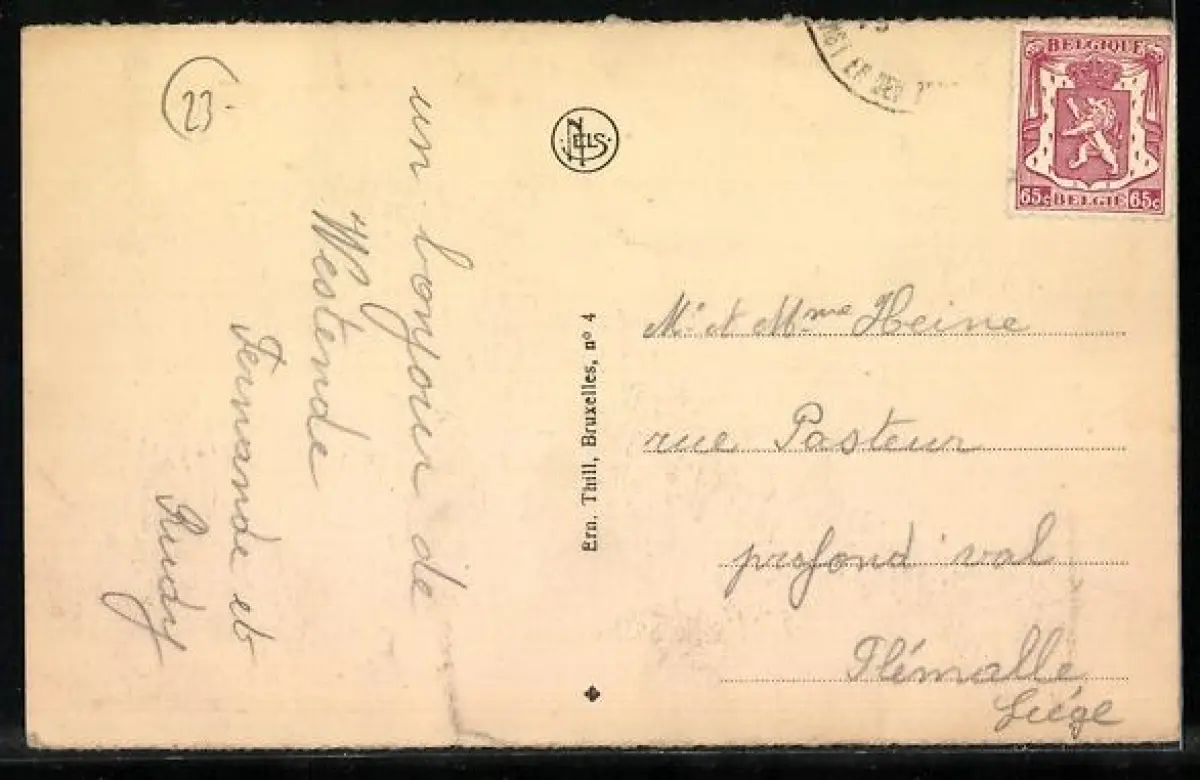 23
un bonjour de
Westende
Fernande et
Rudy
NELS
Ern. Thill, Bruxelles, nº 4
BELGIQUE
65c BELGIE 65c
Mr et Mme Heine
rue Pasteur
profond val
Flémalle
Liége